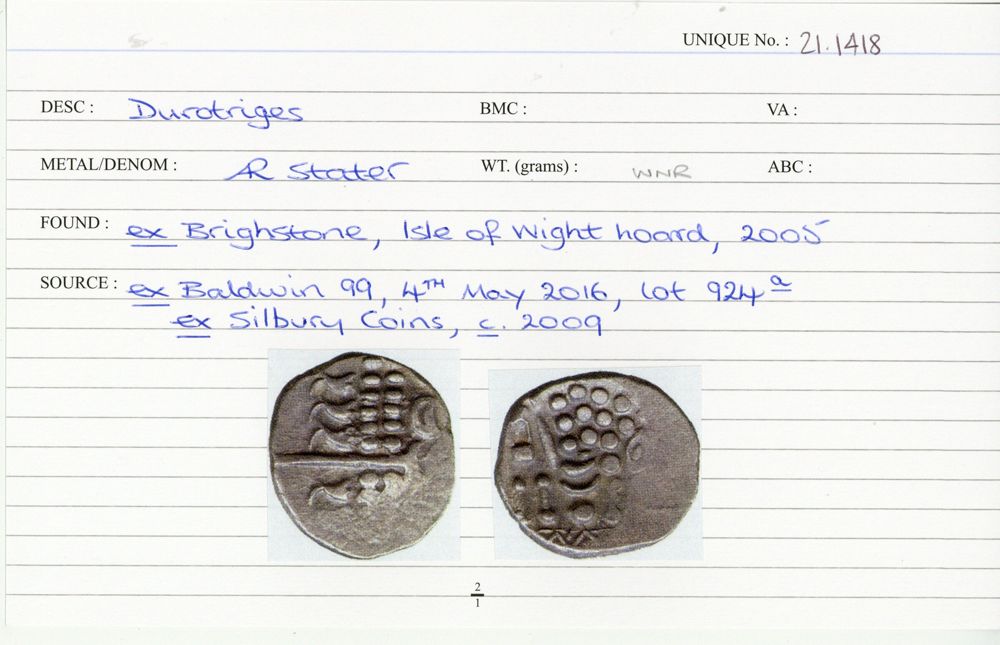 UNIQUE No. : 21.1418
DESC : Durotriges BMC : VA :
METAL/DENOM : AR Stater WT. (grams) : WNR ABC :
FOUND : ex Brighstone, Isle of Wight hoard, 2005
SOURCE : ex Baldwin 99, 4TH May 2016, lot 924a
ex Silbury Coins, c. 2009
2
1